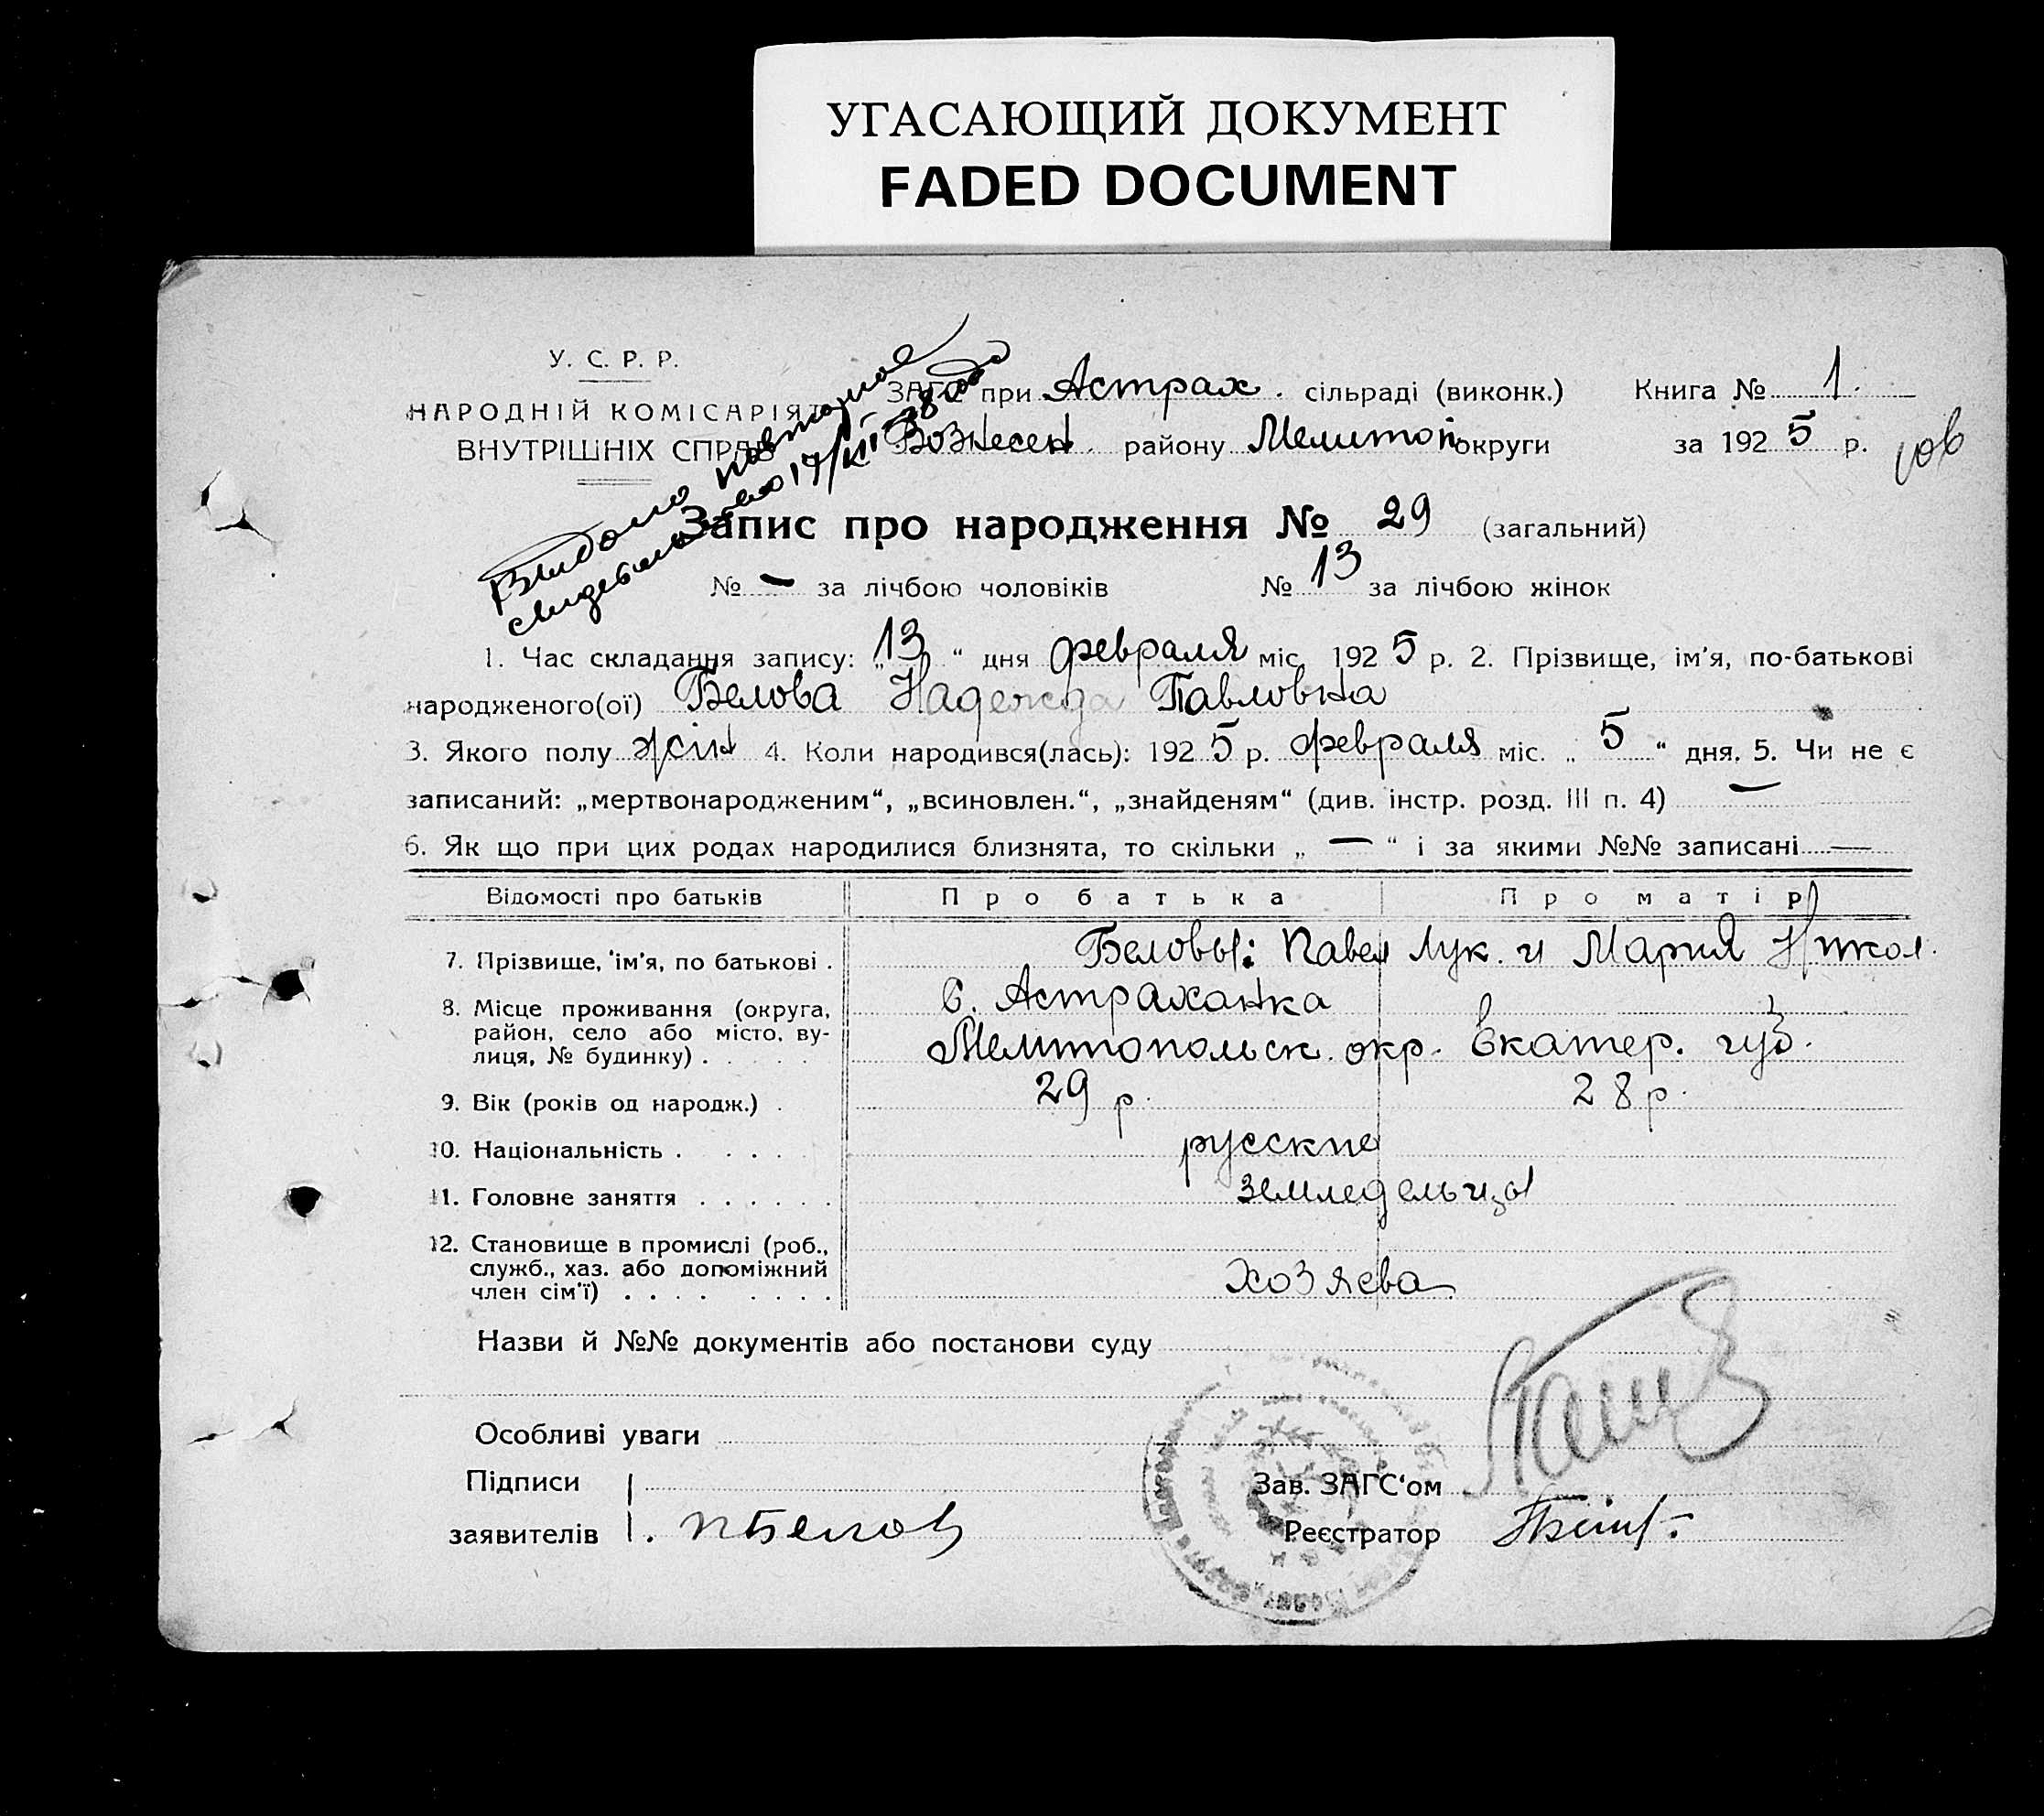 УГАСАЮЩИЙ ДОКУМЕНТ
FADED DOCUMENT
У. С. Р. Р.
НАРОДНІЙ КОМІСАРІЯТ
ВНУТРІШНІХ СПРАВ
Видано повторное
свидетельство 17/XII-38 года
ЗАГС при Астрах. сільраді (виконк.) Книга № 1.
Вознесен. району Мелитоп округи за 1925 р.
Запис про народження № 29 (загальний)
№ — за лічбою чоловіків № 13 за лічбою жінок
1. Час складання запису: „13“ дня февраля міс. 1925 р. 2. Прізвище, ім'я, по-батькові
народженого(ої) Белова Надежда Павловна
3. Якого полу жін 4. Коли народився(лась): 1925 р. февраля міс. „5“ дня. 5. Чи не є
записаний: „мертвонародженим“, „всиновлен.“, „знайденям“ (див. інстр. розд. III п. 4) —
6. Як що при цих родах народилися близнята, то скільки „—“ і за якими №№ записані —
Відомості про батьків Про батька Про матір
7. Прізвище, ім'я, по батькові . Беловы: Павел Лук. и Мария Никол.
8. Місце проживання (округа, с. Астраханка
район, село або місто, ву-
лиця, № будинку) . Мелитопольск. окр. Екатер. губ.
9. Вік (років од народж.) . 29 р. 28 р.
10. Національність . русские
11. Головне заняття . земледельцы
12. Становище в промислі (роб.,
служб., хаз. або допоміжний хозяева
член сім'ї) .
Назви й №№ документів або постанови суду
Особливі уваги
Підписи Зав. ЗАГС'ом
заявителів П Белов Реєстратор